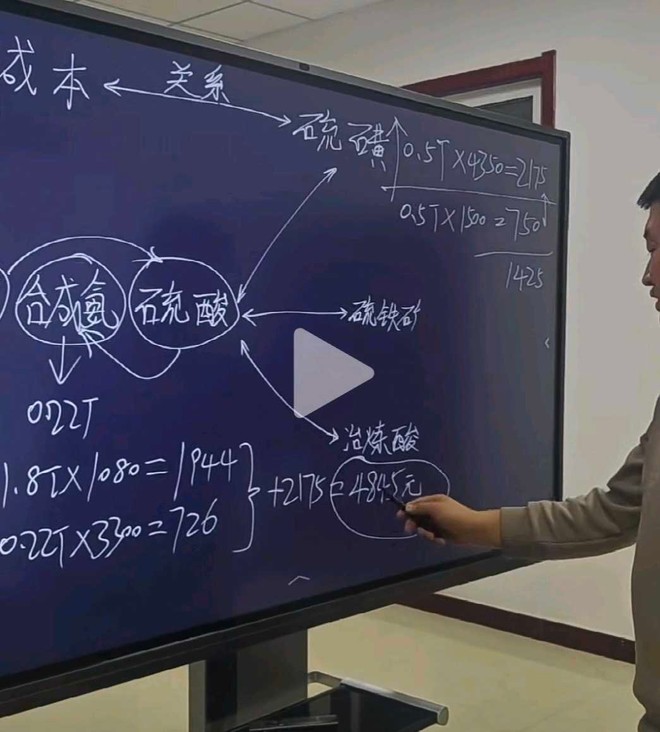 成本
关系
硫磺
0.5T×4350=2175
0.5T×1500=750
1425
合成氨
硫酸
硫铁矿
0.22T
冶炼酸
1.8T×1080=1944
0.22T×3300=726
+2175=4845元